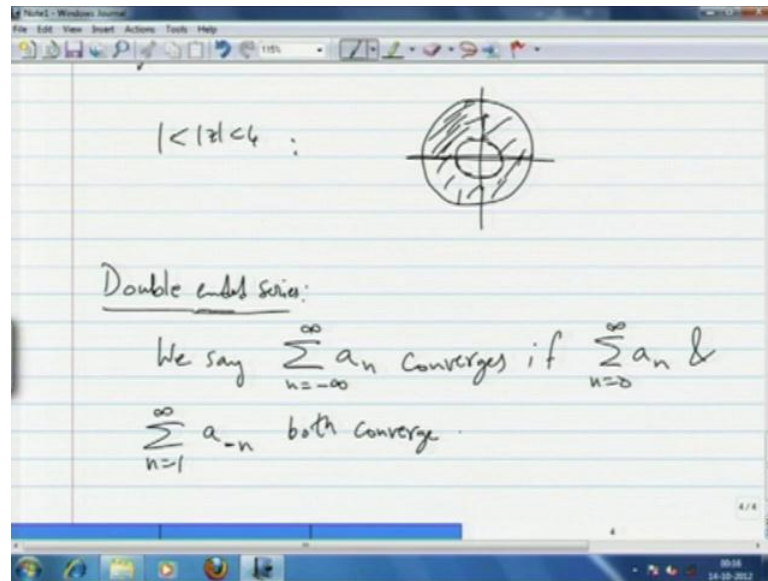 Note1 - Windows Journal
File Edit View Insert Actions Tools Help
115%
1 < |z| < 4 :
Double ended series:
We say ∞∑n=-∞ aₙ converges if ∞∑n=0 aₙ &
∞∑n=1 a₋ₙ both converge.
4/4
4
00:16
14-10-2012